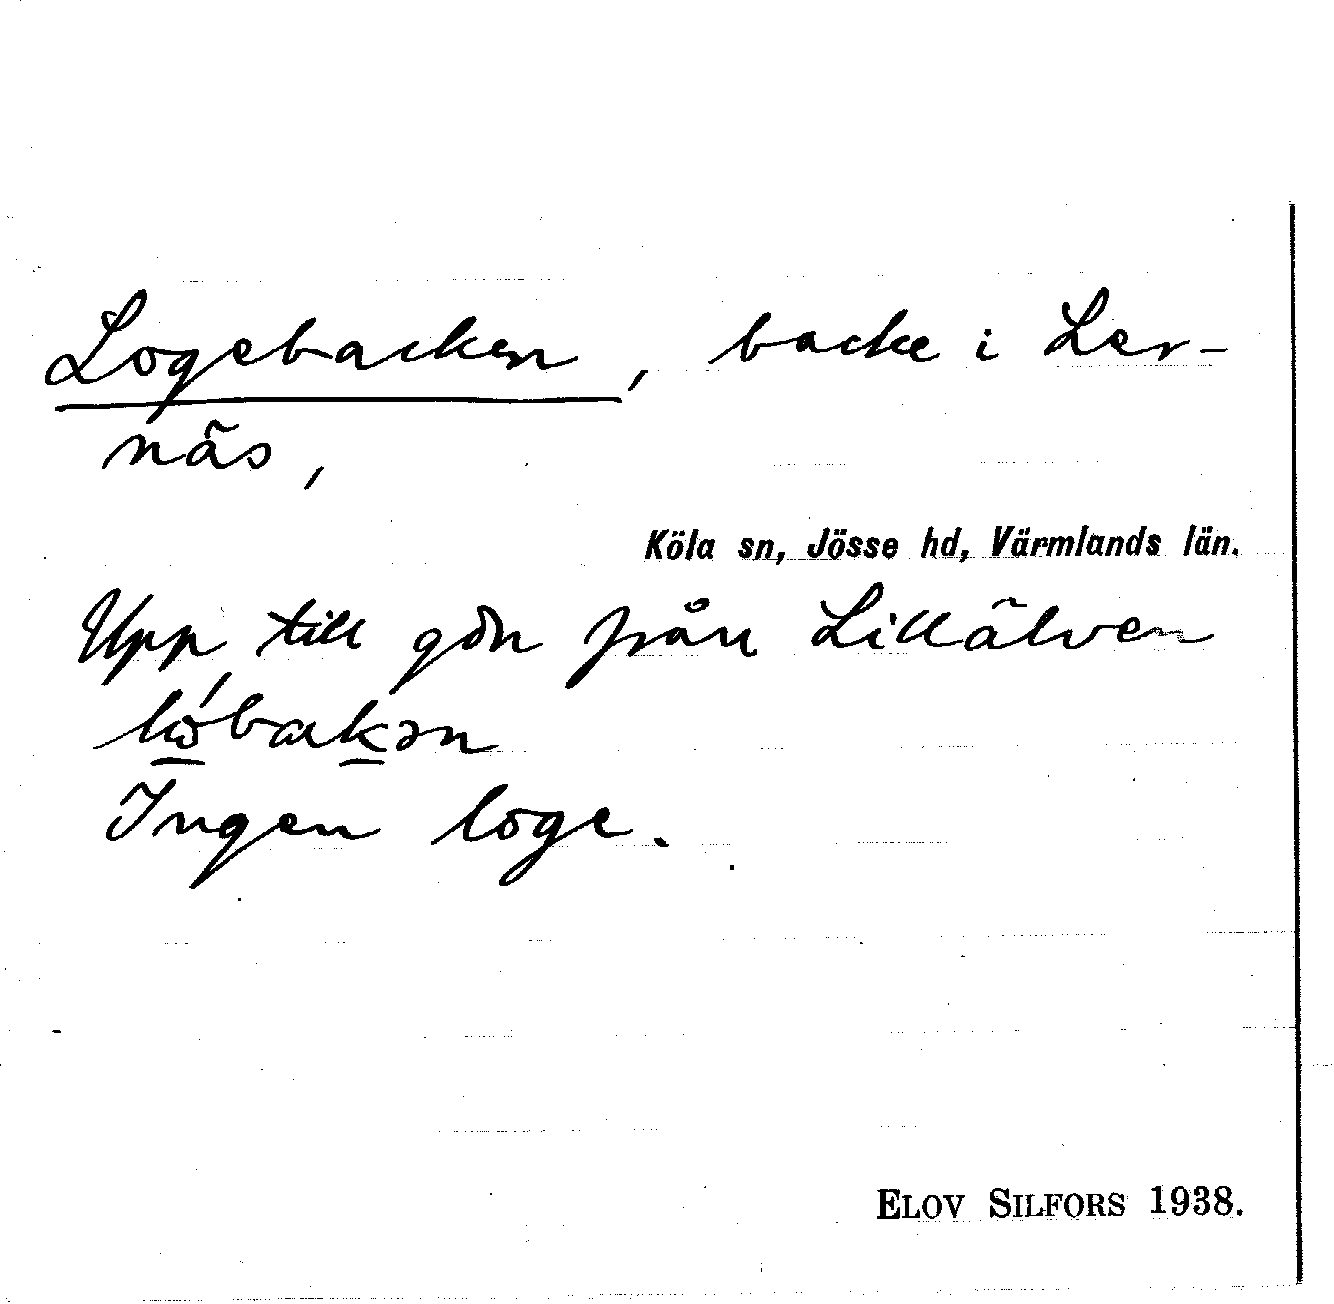 Logebacken, backe i Ler-
näs,
Köla sn, Jösse hd, Värmlands län.
Upp till gdn från Lillälven
Ingen loge.
ELOV SILFORS 1938.